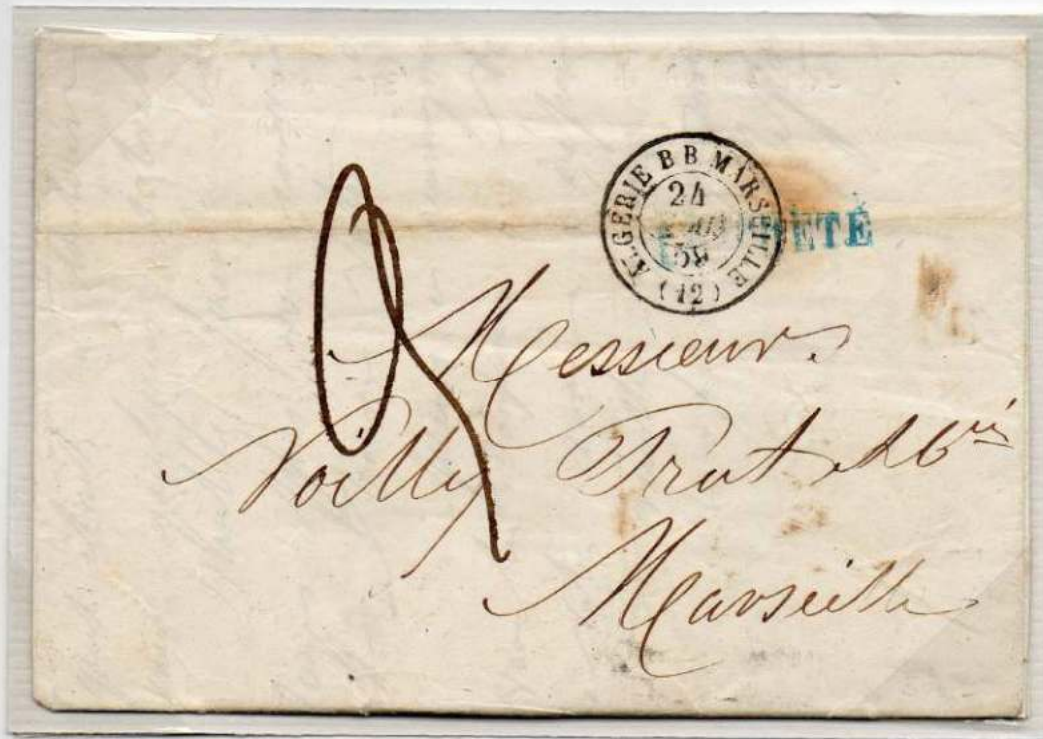 ALGERIE B B MARSEILLE
24
59
(12)
ETÉ
Messieurs
Noilly Prat & Cie
Marseille